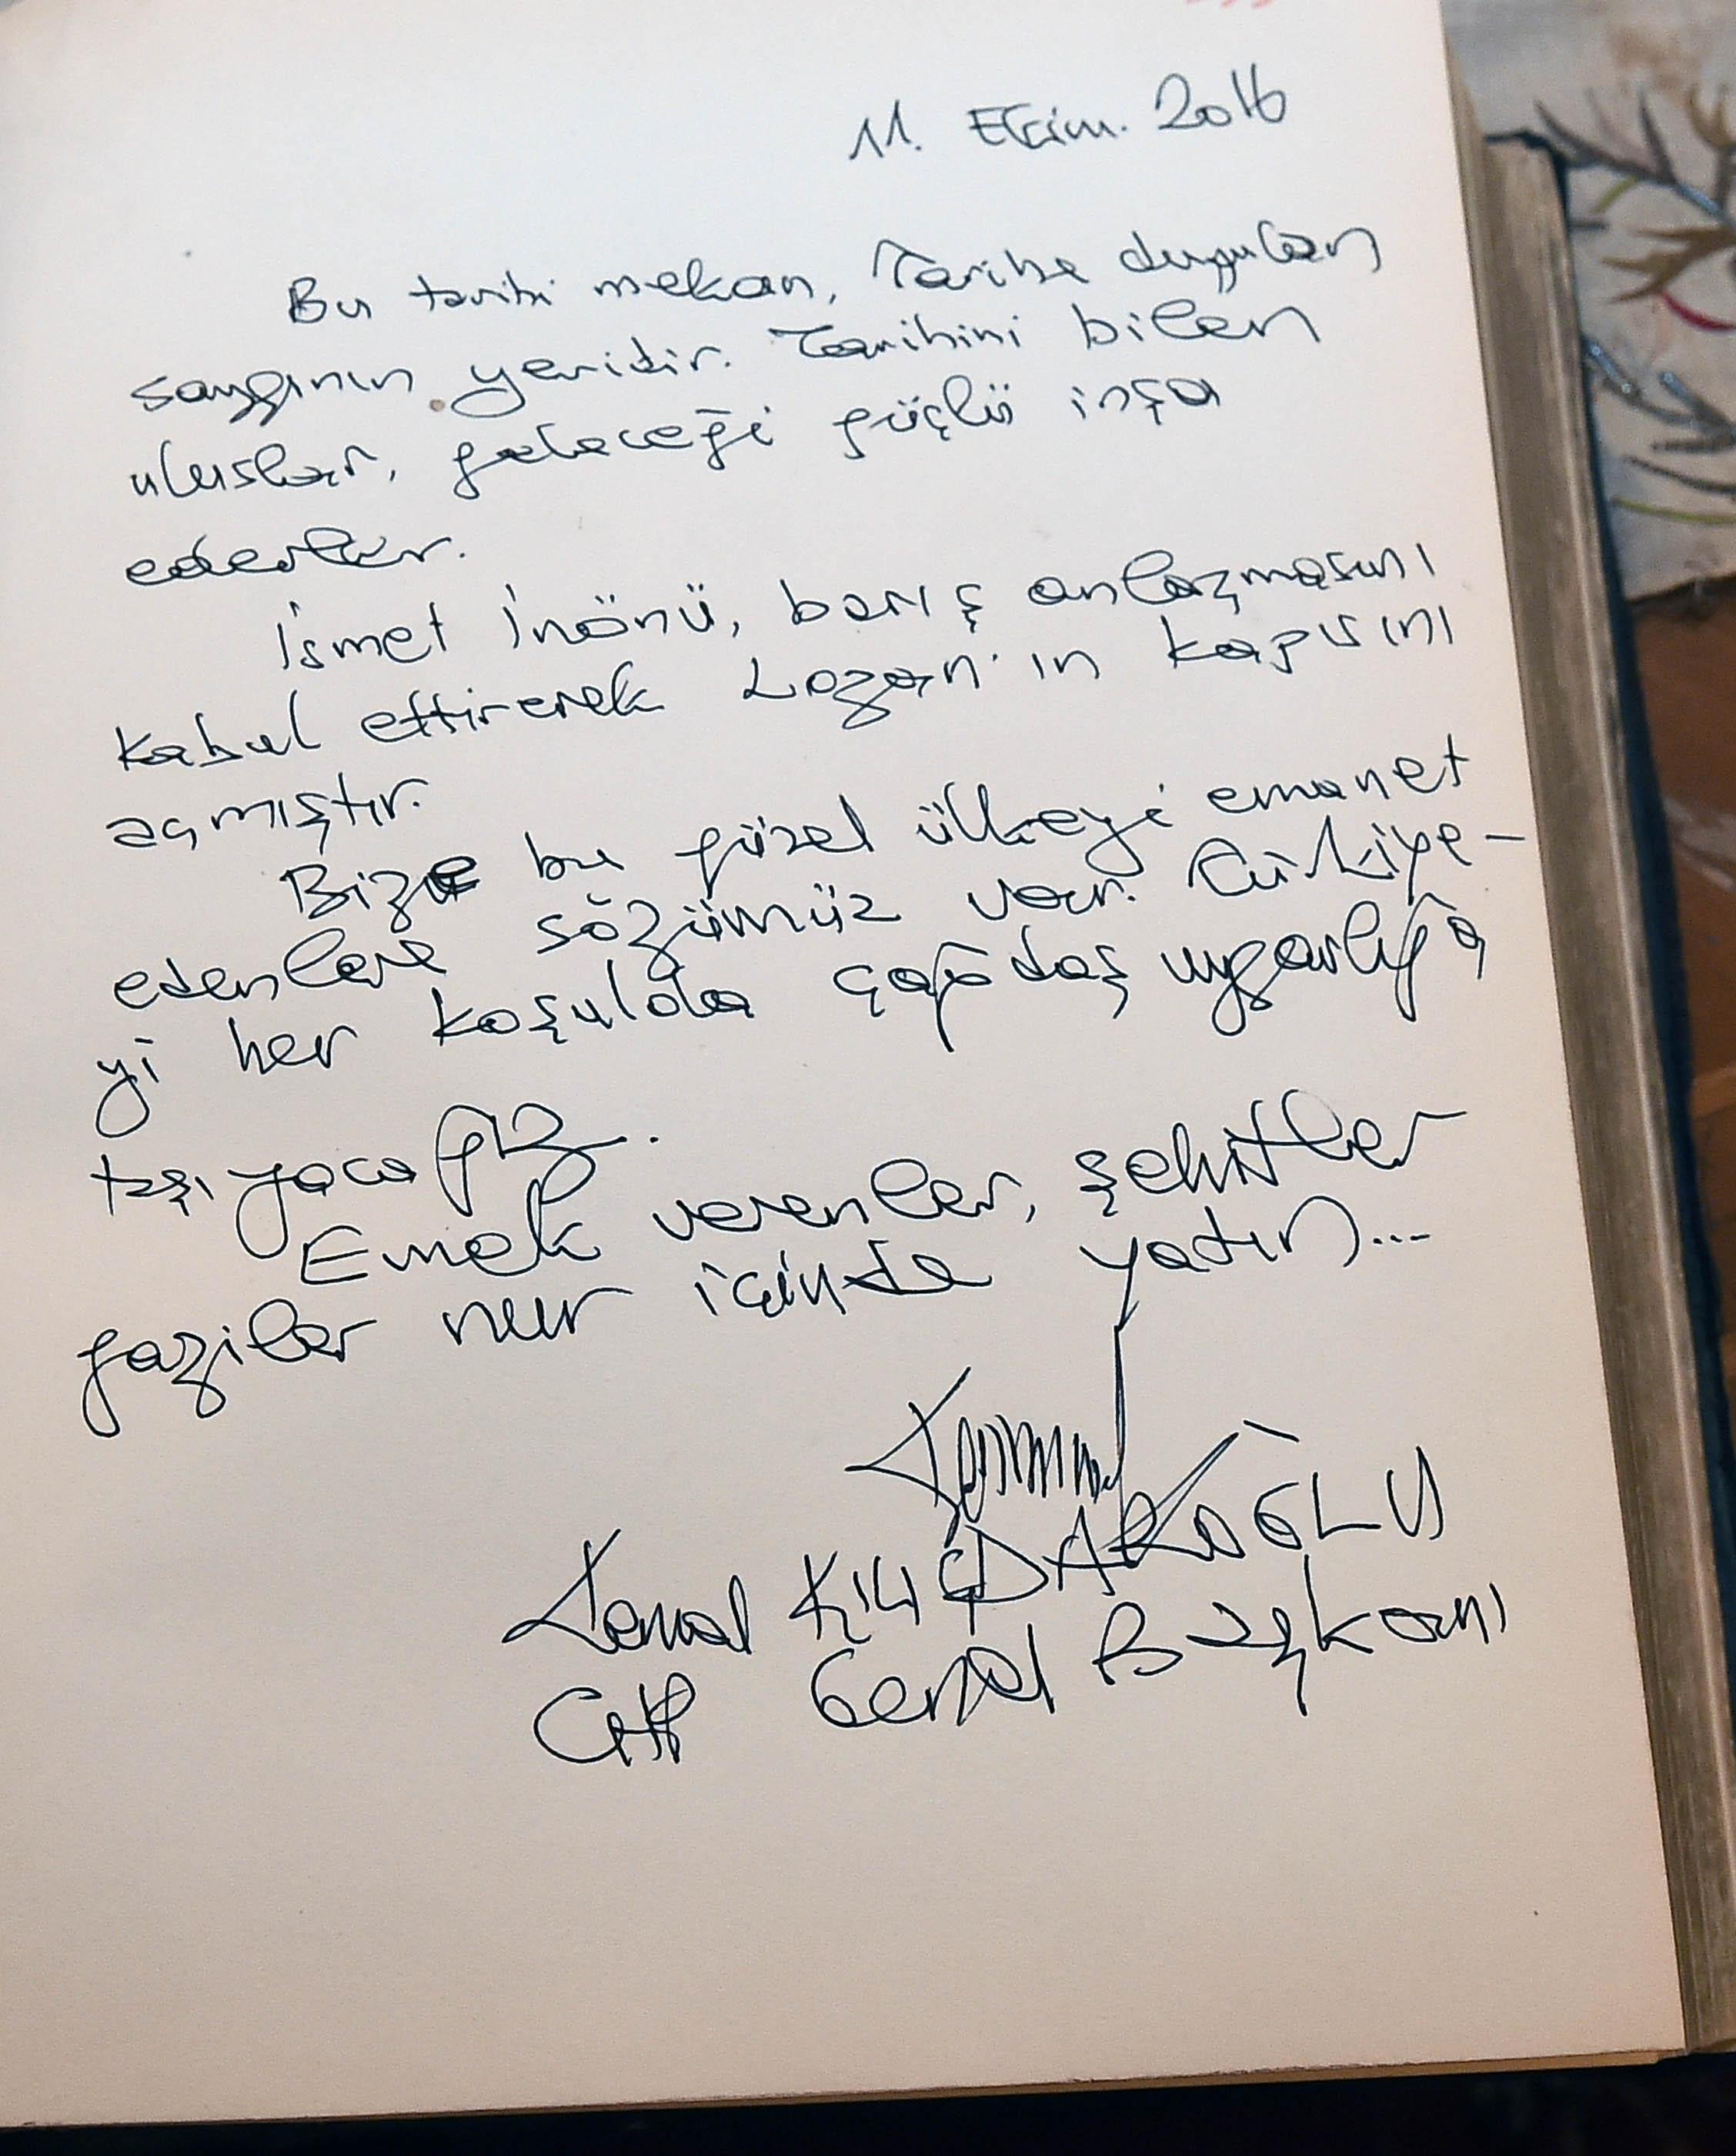 11. Ekim. 2016
Bu tarihi mekan, Tarihe duyulan
saygının yeridir. Tarihini bilen
uluslar, geleceği güçlü inşa
ederler.
İsmet İnönü, barış anlaşmasını
kabul ettirerek Lozan'ın kapısını
açmıştır.
Bize bu güzel ülkeyi emanet
edenlere sözümüz var. Türkiye-
yi her koşulda çağdaş uygarlığa
taşıyacağız.
Emek verenler, şehitler
gaziler nur içinde yatın...
Kemal KILIÇDAROĞLU
CHP Genel Başkanı